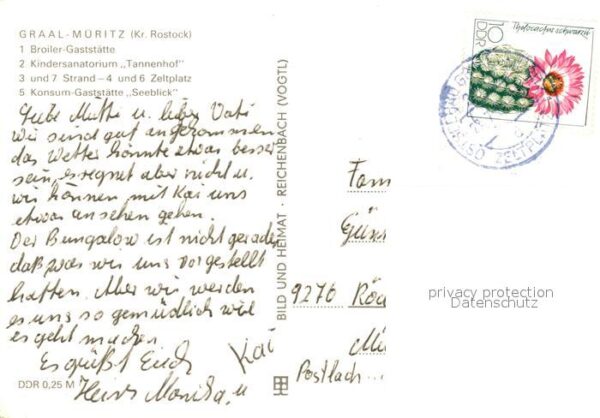 GRAAL-MÜRITZ (Kr. Rostock)
1 Broiler-Gaststätte
2 Kindersanatorium „Tannenhof"
3 und 7 Strand – 4 und 6 Zeltplatz
5 Konsum-Gaststätte „Seeblick"
Liebe Mutti u. lieber Vati
wir sind gut angekommen
das Wetter könnte etwas besser
sein, es regnet aber nicht u.
wir können mit Kai uns
etwas ansehen gehen.
Der Bungalow ist nicht gerade
daß was wir uns vorgestellt
hatten. Aber wir werden
es uns so gemüdlich wie
es geht machen.
Es grüßt Euch
Heinz Monika u
Kai
DDR 0,25 M
BILD UND HEIMAT · REICHENBACH (VOGTL)
10
DDR
Thelocactus schwarzii
ZELTPLATZ
Fam
Gün
9270
Postlach...
privacy protection
Datenschutz